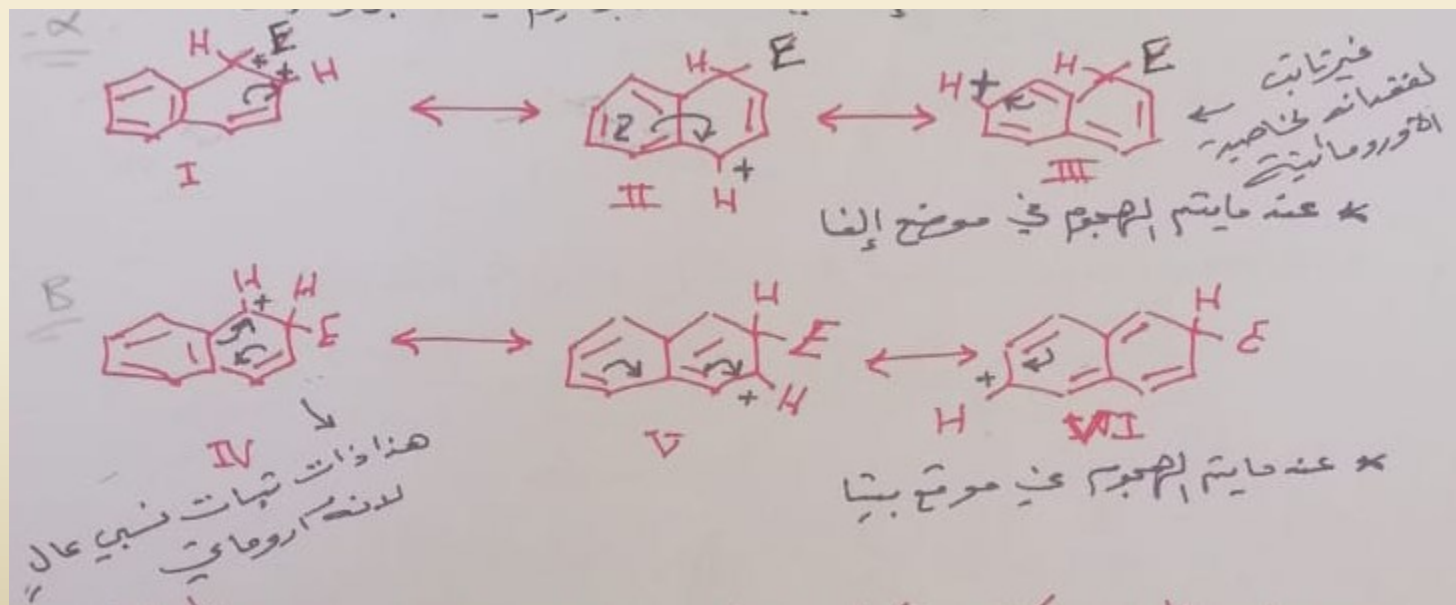 -α
H E + H
H E + H
H + H E
I
II
III
غير ثابت
لفقدانه لخاصية
الأروماتية
* عند مايتم الهجوم في موضع إلفا
B
H + H E
H E + H
H E + H
IV
V
VI
هذا ذات ثبات نسبي عالٍ
لانه اروماتي
* عند مايتم الهجوم في موقع بيتا